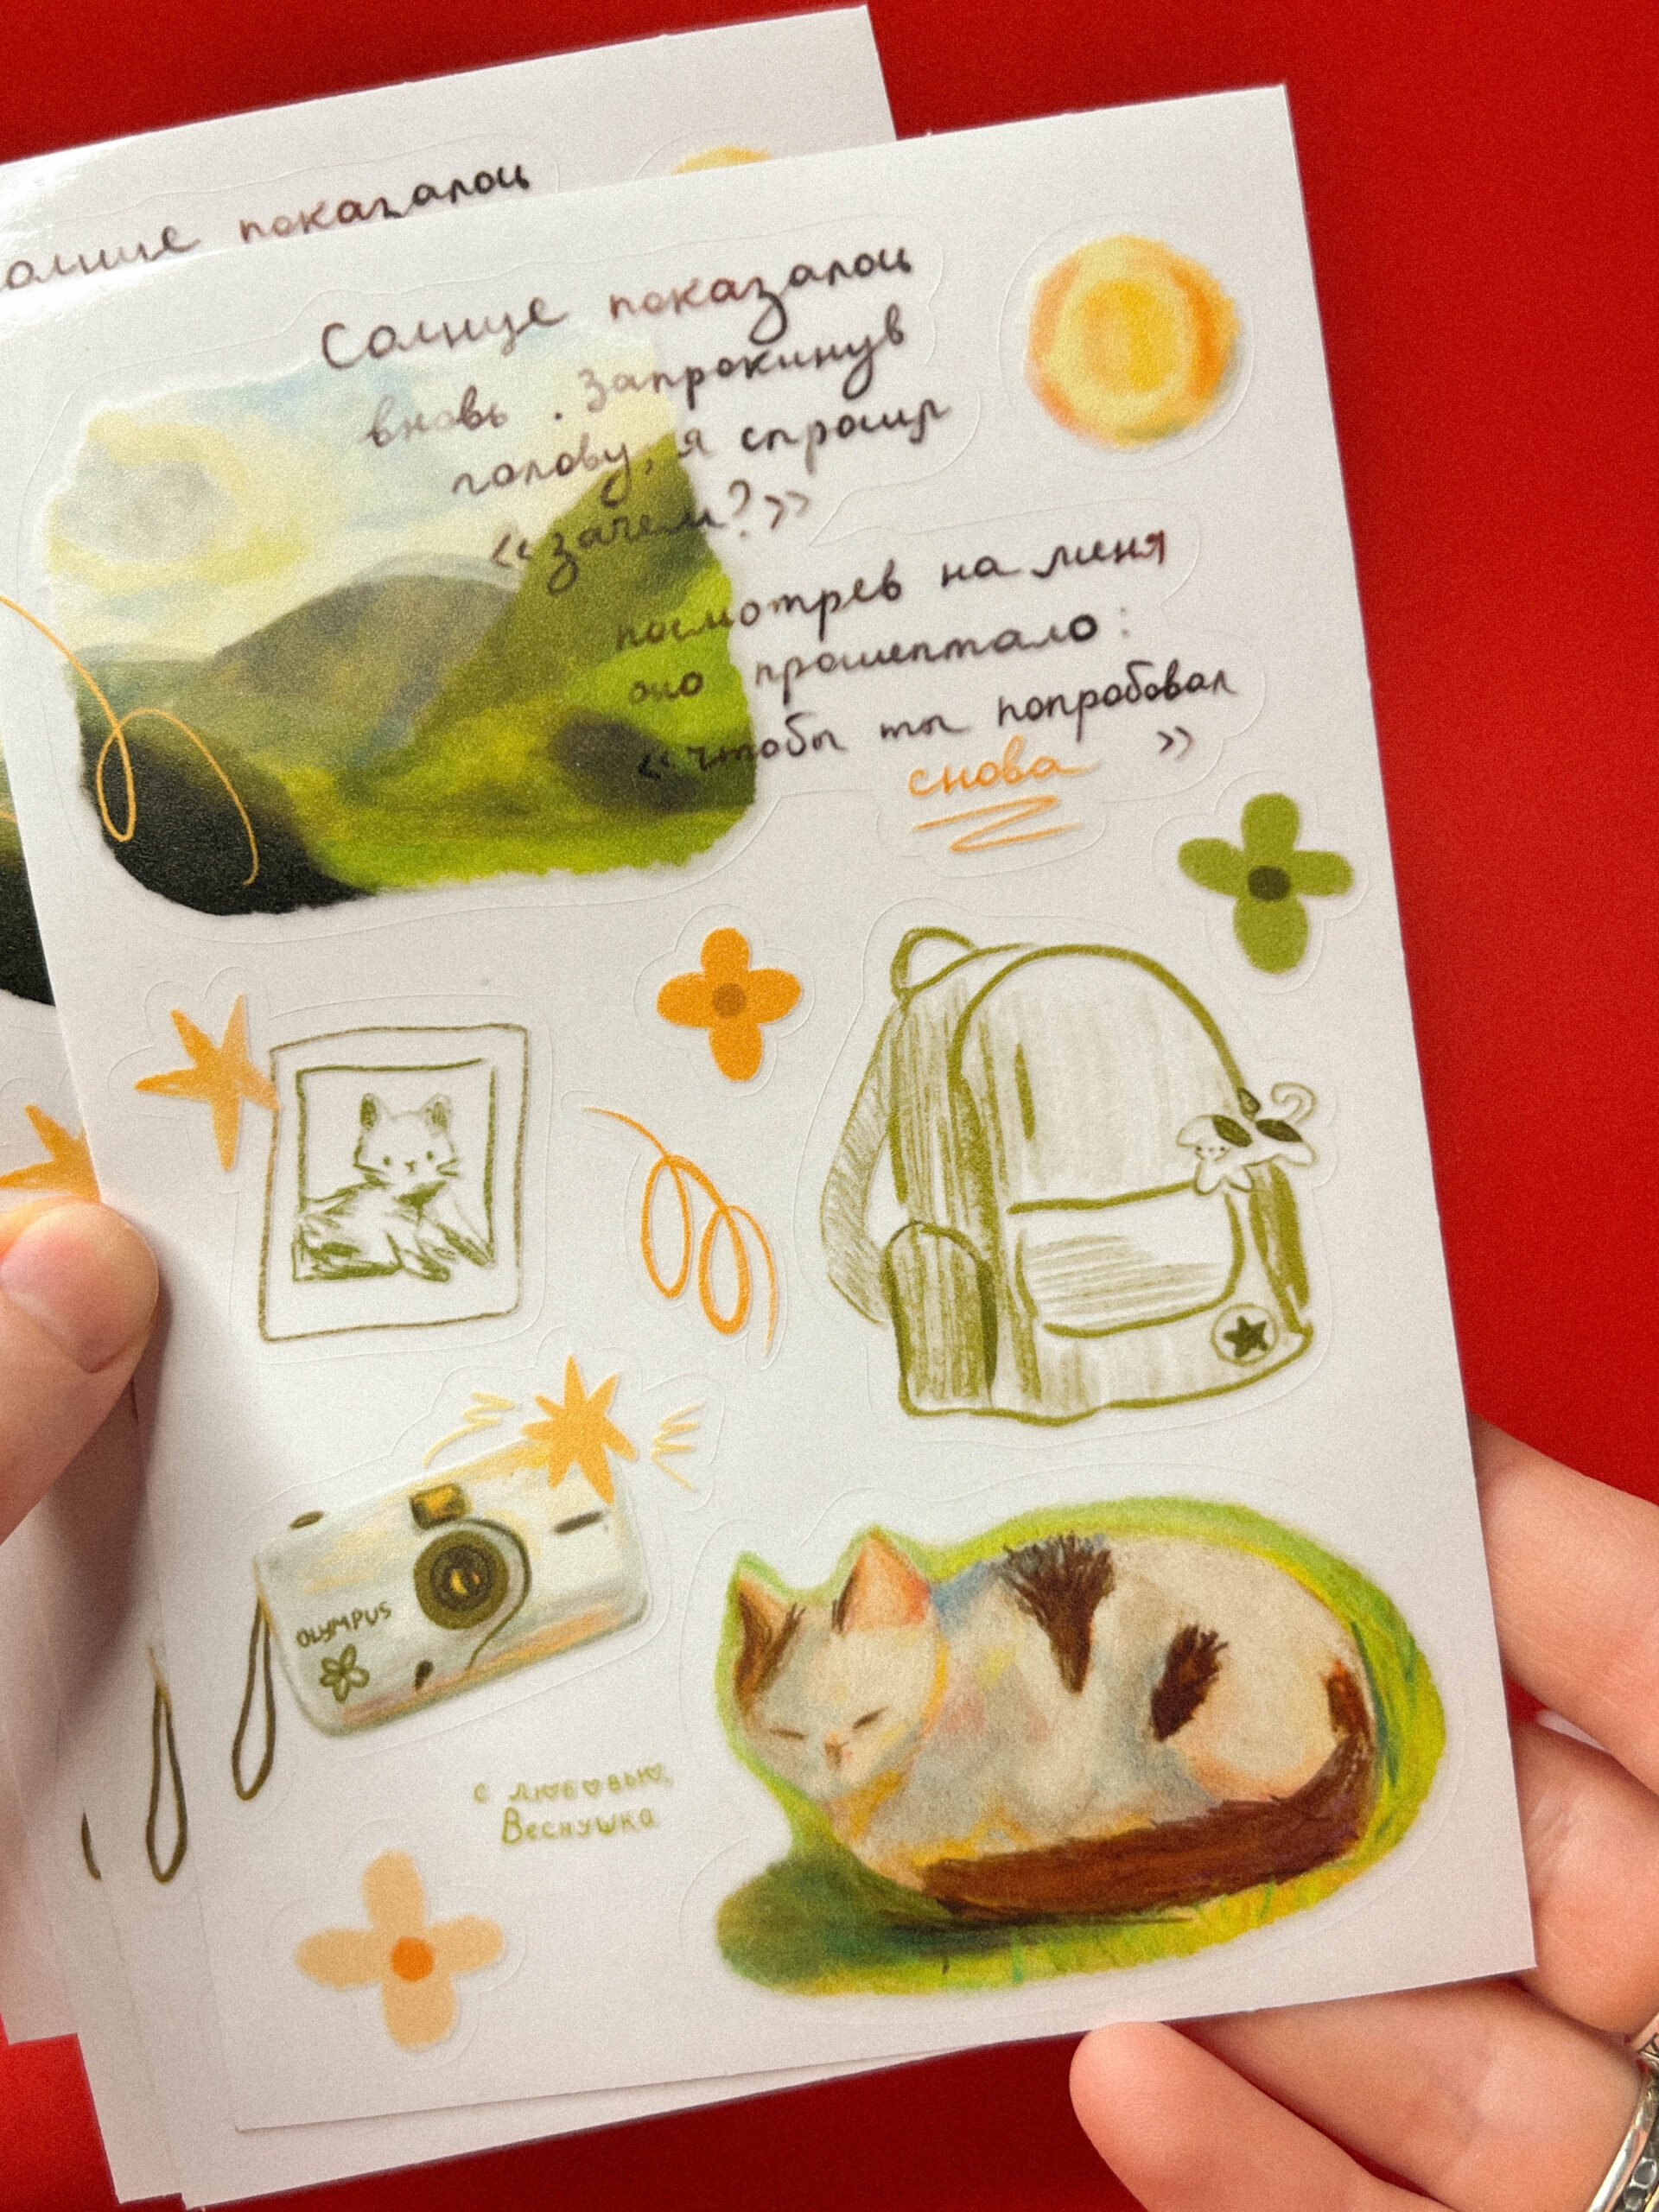 солнце показалось
Солнце показалось
вновь. Запрокинув
голову, я спросил
«зачем?»
посмотрев на меня
оно прошептало:
«чтобы ты попробовал
снова »
OLYMPUS
с любовью,
Веснушка